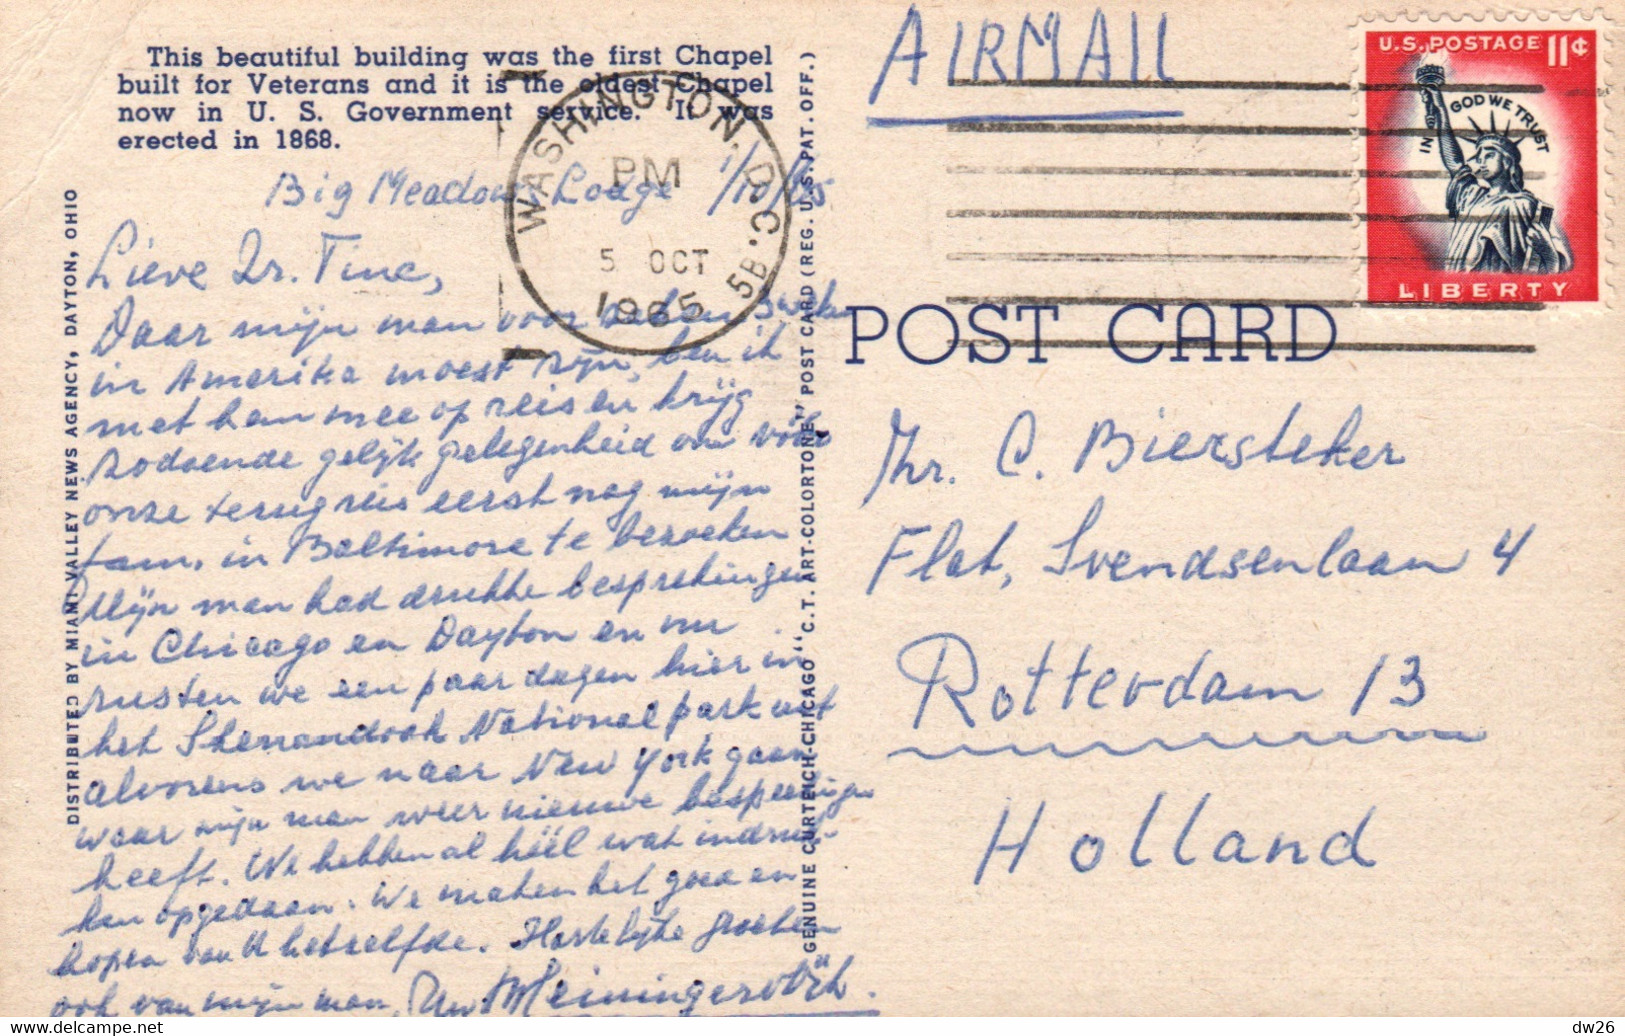 This beautiful building was the first Chapel
built for Veterans and it is the oldest Chapel
now in U. S. Government service. It was
erected in 1868.
Big Meadows Lodge 1/10/65
Lieve Zr. Tine,
Daar mijn man voor zaken 3 weken
in Amerika moest zijn, ben ik
met hem mee op reis en krijg
zodoende gelijk gelegenheid om vóór
onze terugreis eerst nog mijn
fam. in Baltimore te bezoeken
Mijn man had drukke besprekingen
in Chicago en Dayton en nu
rusten we een paar dagen hier in
het Shenandoah National park uit
alvorens we naar New York gaan
waar mijn man weer nieuwe besprekingen
heeft. We hebben al héél wat indruk-
ken opgedaan. We maken het goed en
hopen van U hetzelfde. Hartelijke groeten
ook van mijn man, Uw
DISTRIBUTED BY MIAMI VALLEY NEWS AGENCY, DAYTON, OHIO
GENUINE CURTEICH-CHICAGO "C.T. ART-COLORTONE" POST CARD (REG. U.S. PAT. OFF.)
WASHINGTON, D.C. 5B
PM
5 OCT
1965
AIRMAIL
U.S. POSTAGE 11¢
IN GOD WE TRUST
LIBERTY
POST CARD
Mr. C. Biersteker
Flat, Svendsenlaan 4
Rotterdam 13
Holland
dw26